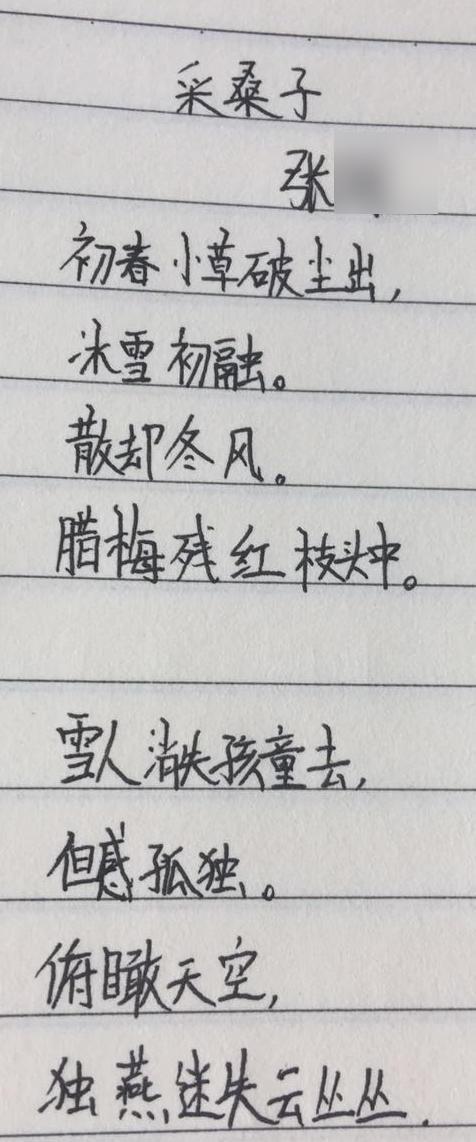 采桑子
张
初春小草破尘出,
冰雪初融。
散却冬风。
腊梅残红枝头中。
雪人消失孩童去,
但感孤独。
俯瞰天空,
独燕迷失云丛丛.